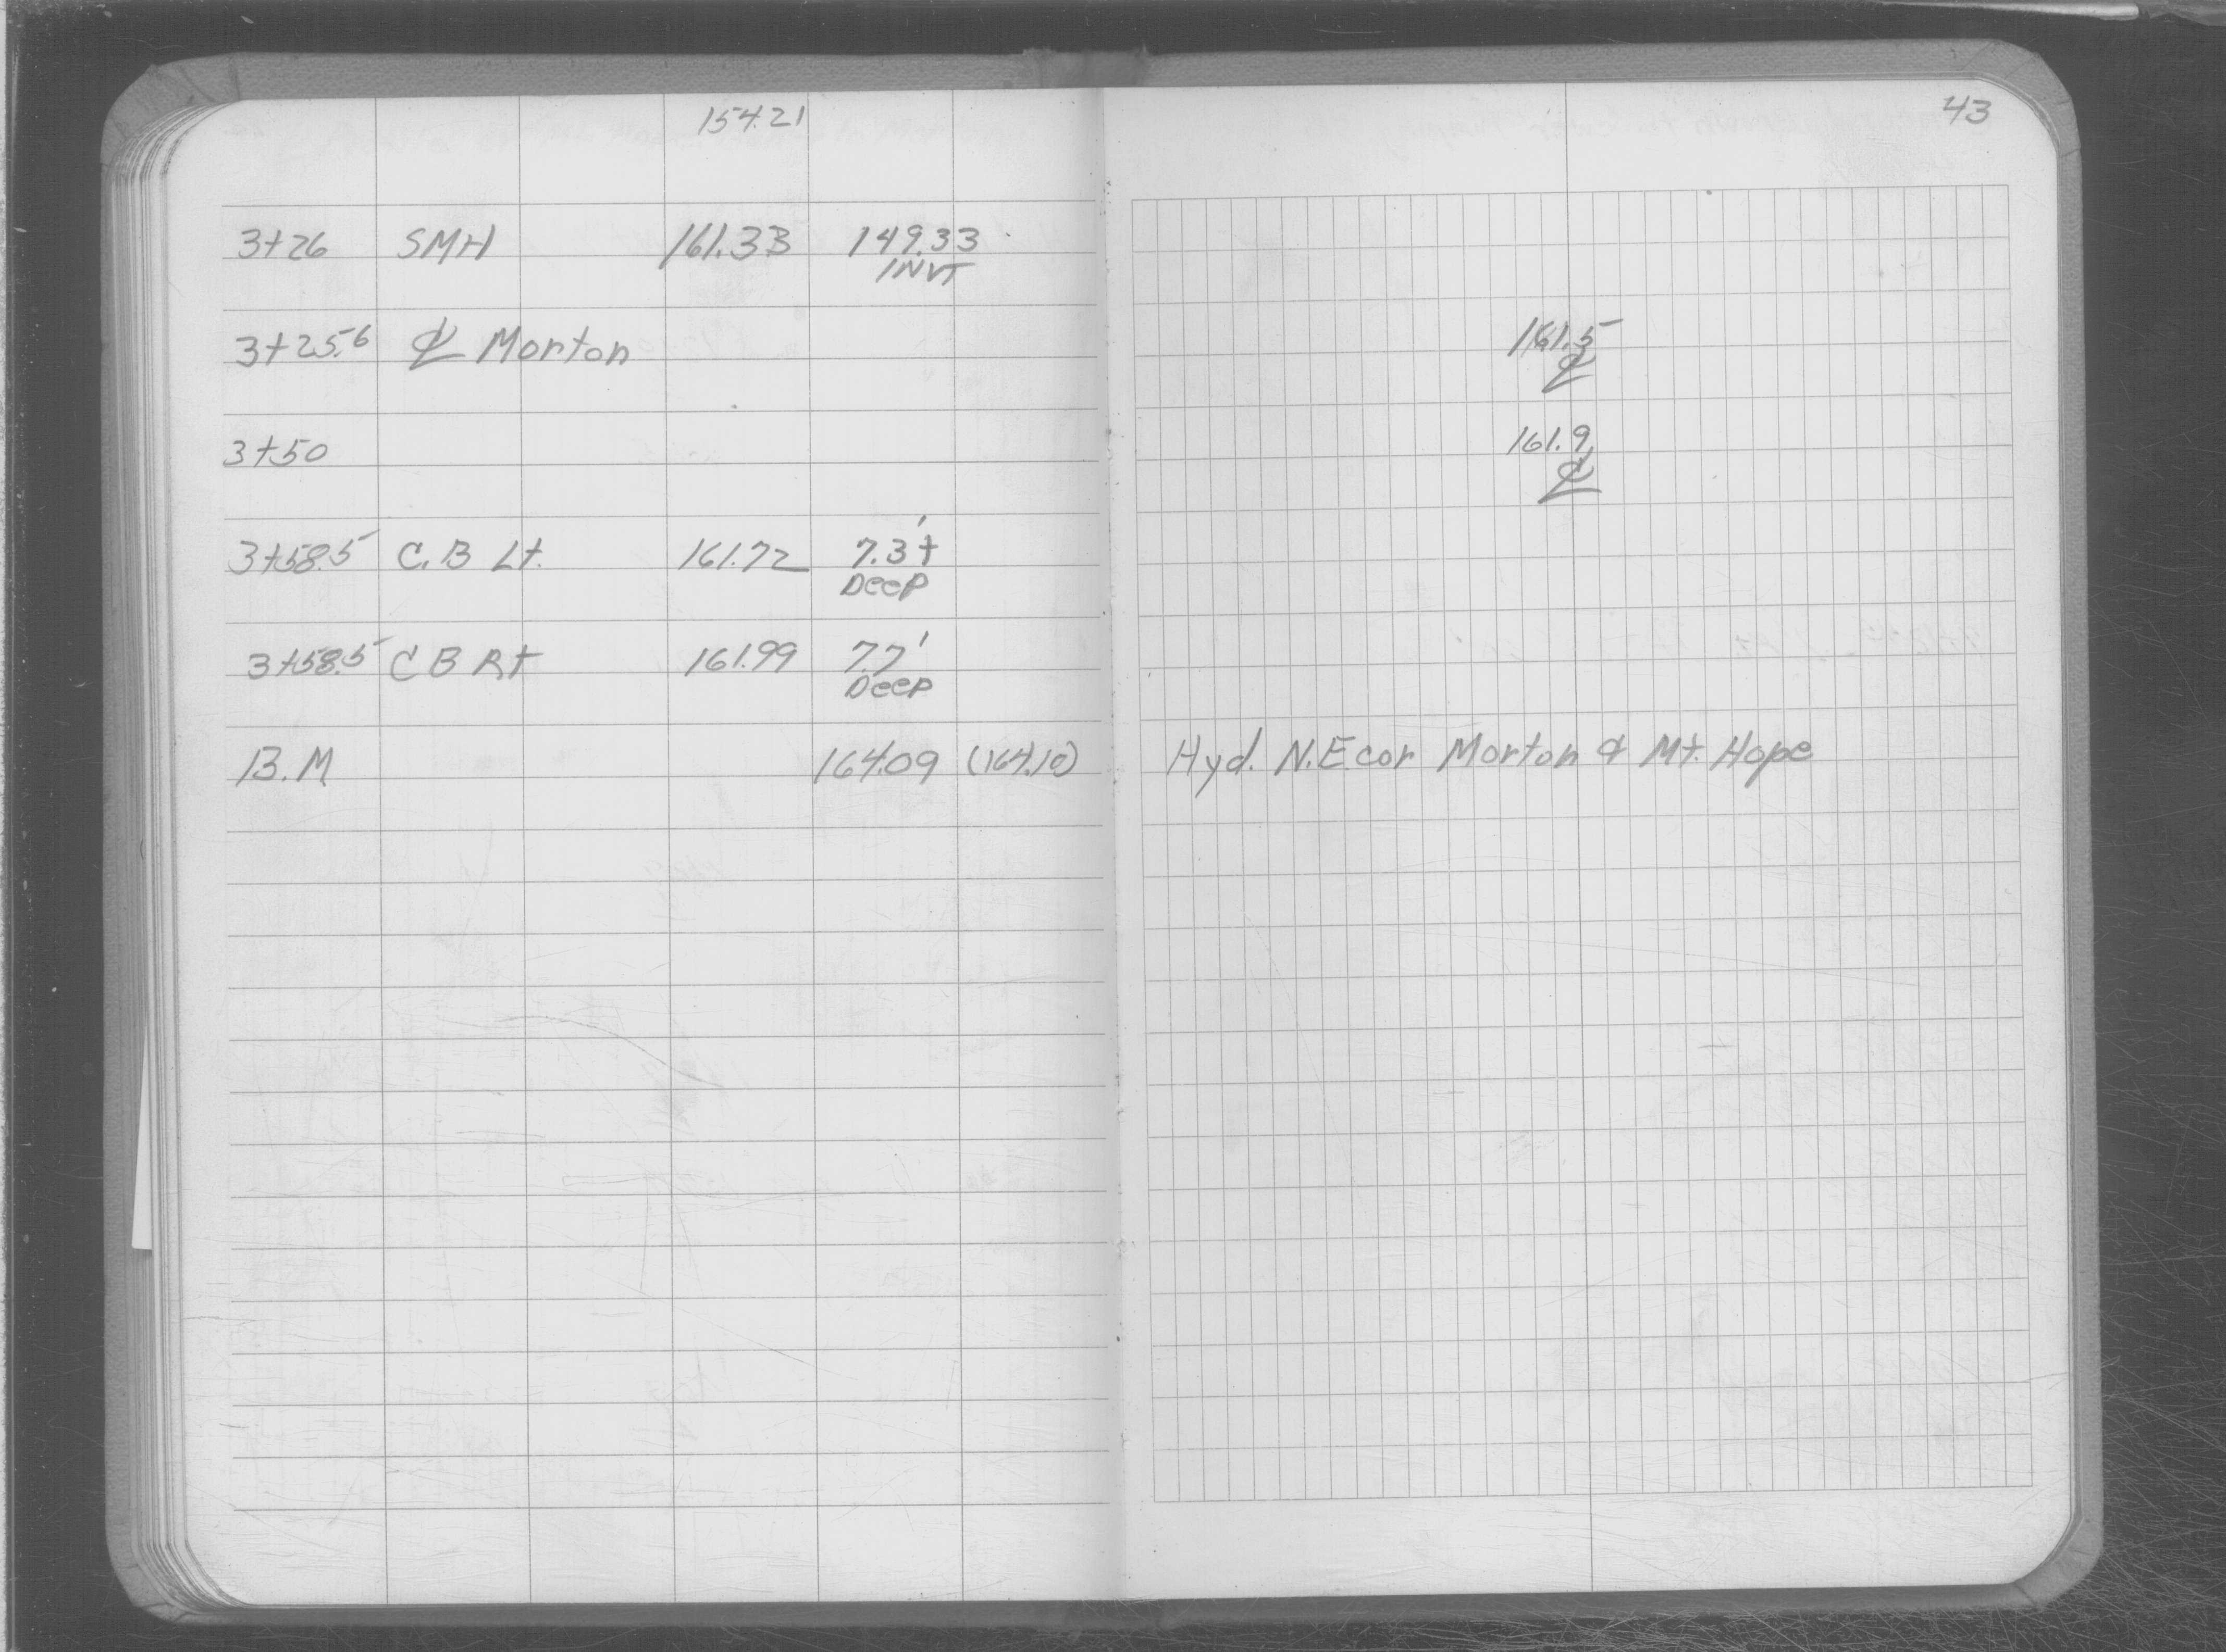 154.21
43
3+26 SMH 161.33 149.33
INVT
3+25.6 ℄ Morton 161.5
℄
3+50 161.9
℄
3+58.5 C.B Lt. 161.72 7.3'±
Deep
3+58.5 C B Rt 161.99 7.7'
Deep
B.M 164.09 (164.10) Hyd. N.E.cor Morton & Mt. Hope